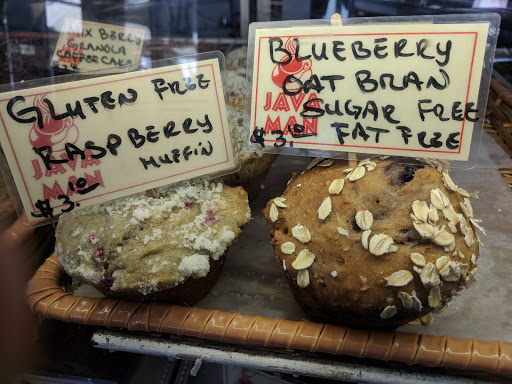 MIX BERRY
GRANOLA
COFFEECAKE
GLUTEN FREE
RASPBERRY
MUFFIN
JAVA
MAN
$3.10
BLUEBERRY
OAT BRAN
SUGAR FREE
FAT FREE
JAVA
MAN
$3.10